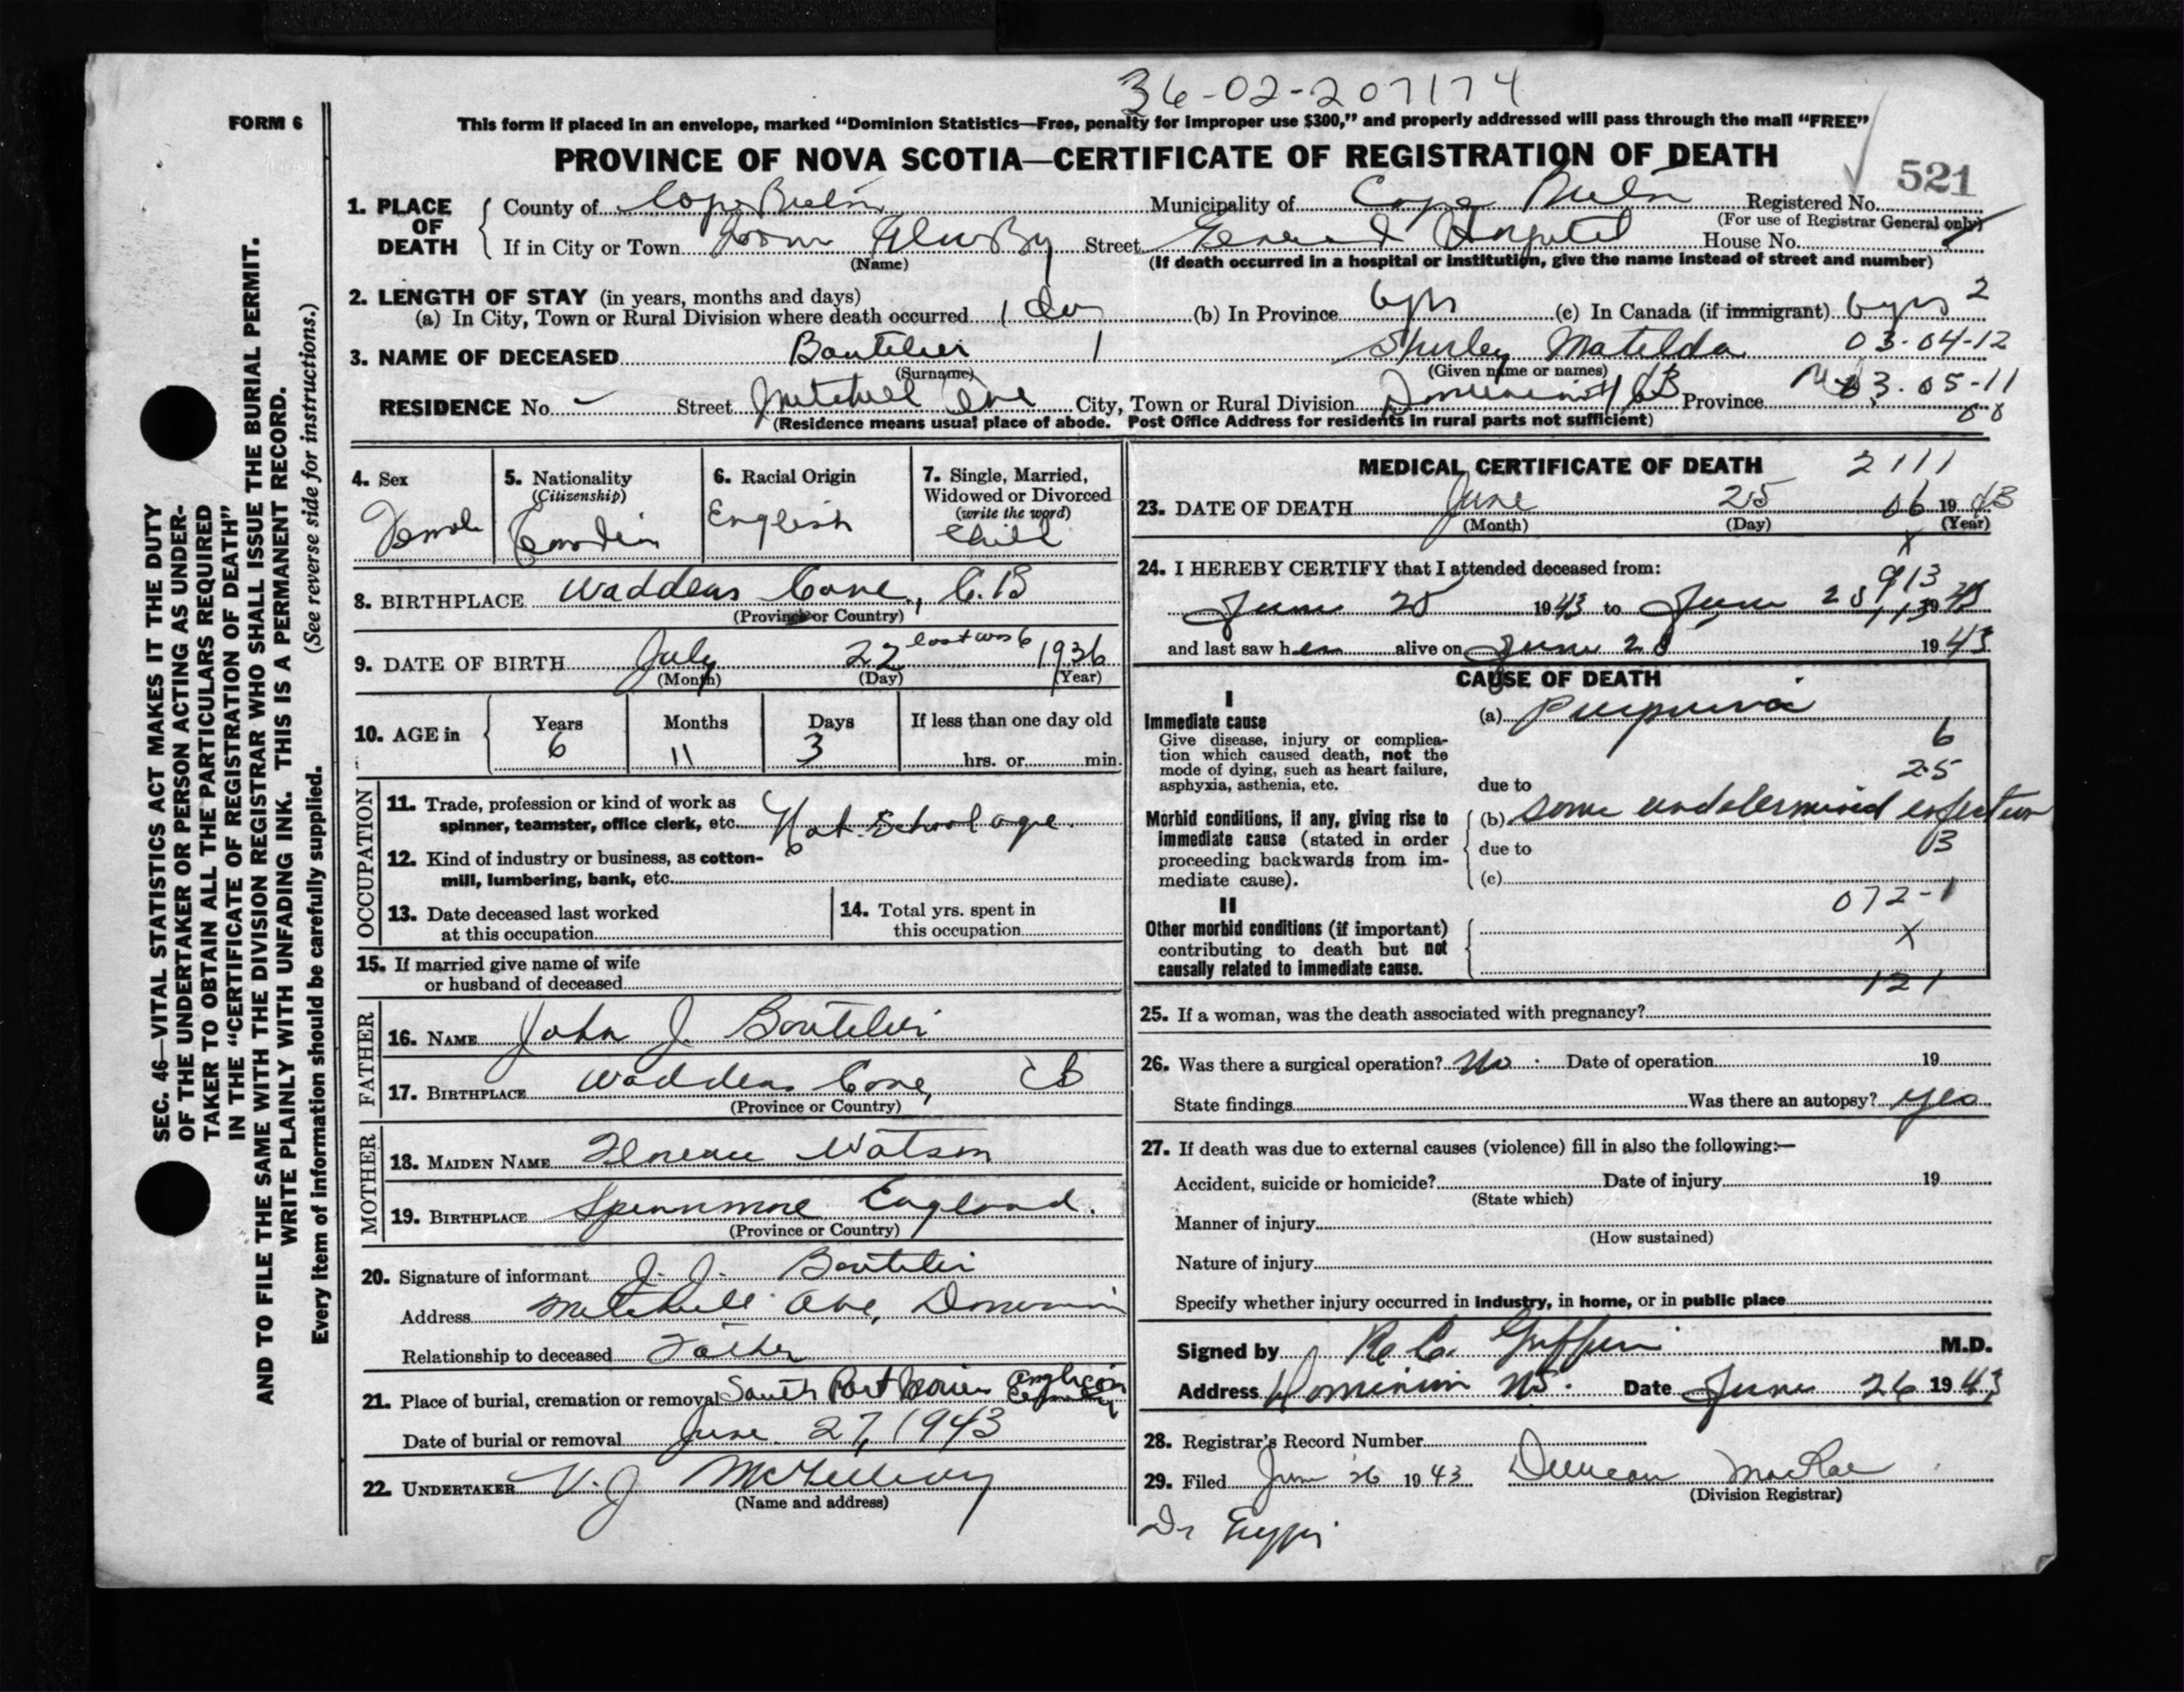 36-02-207174
FORM 6
This form if placed in an envelope, marked “Dominion Statistics—Free, penalty for improper use $300,” and properly addressed will pass through the mail “FREE”
PROVINCE OF NOVA SCOTIA—CERTIFICATE OF REGISTRATION OF DEATH
521
1. PLACE OF DEATH
County of Cape Breton Municipality of Cape Breton Registered No.
(For use of Registrar General only)
If in City or Town Town Glace Bay Street General Hospital House No.
(Name) (If death occurred in a hospital or institution, give the name instead of street and number)
2. LENGTH OF STAY (in years, months and days)
(a) In City, Town or Rural Division where death occurred 1 da (b) In Province 6 yrs (c) In Canada (if immigrant) 6 yrs 2
3. NAME OF DECEASED Boutelier 1 Shirley Matilda 03-04-12
(Surname) (Given name or names)
RESIDENCE No. - Street Mitchell Ave City, Town or Rural Division Dominion CB Province 03-05-11
(Residence means usual place of abode. Post Office Address for residents in rural parts not sufficient) 00
4. Sex
Female
5. Nationality
(Citizenship)
Canadian
6. Racial Origin
English
7. Single, Married,
Widowed or Divorced
(write the word)
Child
8. BIRTHPLACE Waddens Cove, C.B
(Province or Country)
9. DATE OF BIRTH July 22 1936
(Month) (Day) (Year)
10. AGE in Years Months Days If less than one day old
6 11 3 hrs. or min.
OCCUPATION
11. Trade, profession or kind of work as
spinner, teamster, office clerk, etc. Not School age.
12. Kind of industry or business, as cotton-
mill, lumbering, bank, etc.
13. Date deceased last worked
at this occupation
14. Total yrs. spent in
this occupation
15. If married give name of wife
or husband of deceased
FATHER
16. NAME John J. Boutelier
17. BIRTHPLACE Waddens Cove, CB
(Province or Country)
MOTHER
18. MAIDEN NAME Florence Watson
19. BIRTHPLACE England.
(Province or Country)
20. Signature of informant J. J. Boutelier
Address Mitchell Ave, Dominion
Relationship to deceased Father
21. Place of burial, cremation or removal South Port Morien Anglican Cemetery
Date of burial or removal June 27, 1943
22. UNDERTAKER V. J. McGillivray
(Name and address)
MEDICAL CERTIFICATE OF DEATH 2111
23. DATE OF DEATH June 25 06 1943
(Month) (Day) (Year)
X
24. I HEREBY CERTIFY that I attended deceased from:
913
June 25 1943 to June 25 1943
and last saw her alive on June 25 1943
CAUSE OF DEATH
I
Immediate cause
Give disease, injury or complica-
tion which caused death, not the
mode of dying, such as heart failure,
asphyxia, asthenia, etc.
(a) Purpura
6
25
due to
Morbid conditions, if any, giving rise to
immediate cause (stated in order
proceeding backwards from im-
mediate cause).
(b) some undetermined infection
due to
13
(c)
072-1
II
Other morbid conditions (if important)
contributing to death but not
causally related to immediate cause.
X
121
25. If a woman, was the death associated with pregnancy?
26. Was there a surgical operation? No Date of operation 19
State findings Was there an autopsy? yes
27. If death was due to external causes (violence) fill in also the following:—
Accident, suicide or homicide? Date of injury 19
(State which)
Manner of injury
(How sustained)
Nature of injury
Specify whether injury occurred in industry, in home, or in public place
Signed by R. C. Griffin M.D.
Address Dominion NS. Date June 26 1943
28. Registrar's Record Number
29. Filed June 26 1943 Duncan MacRae
(Division Registrar)
Dr
SEC. 46—VITAL STATISTICS ACT MAKES IT THE DUTY
OF THE UNDERTAKER OR PERSON ACTING AS UNDER-
TAKER TO OBTAIN ALL THE PARTICULARS REQUIRED
IN THE “CERTIFICATE OF REGISTRATION OF DEATH”
AND TO FILE THE SAME WITH THE DIVISION REGISTRAR WHO SHALL ISSUE THE BURIAL PERMIT.
WRITE PLAINLY WITH UNFADING INK. THIS IS A PERMANENT RECORD.
(See reverse side for instructions.)
Every item of information should be carefully supplied.